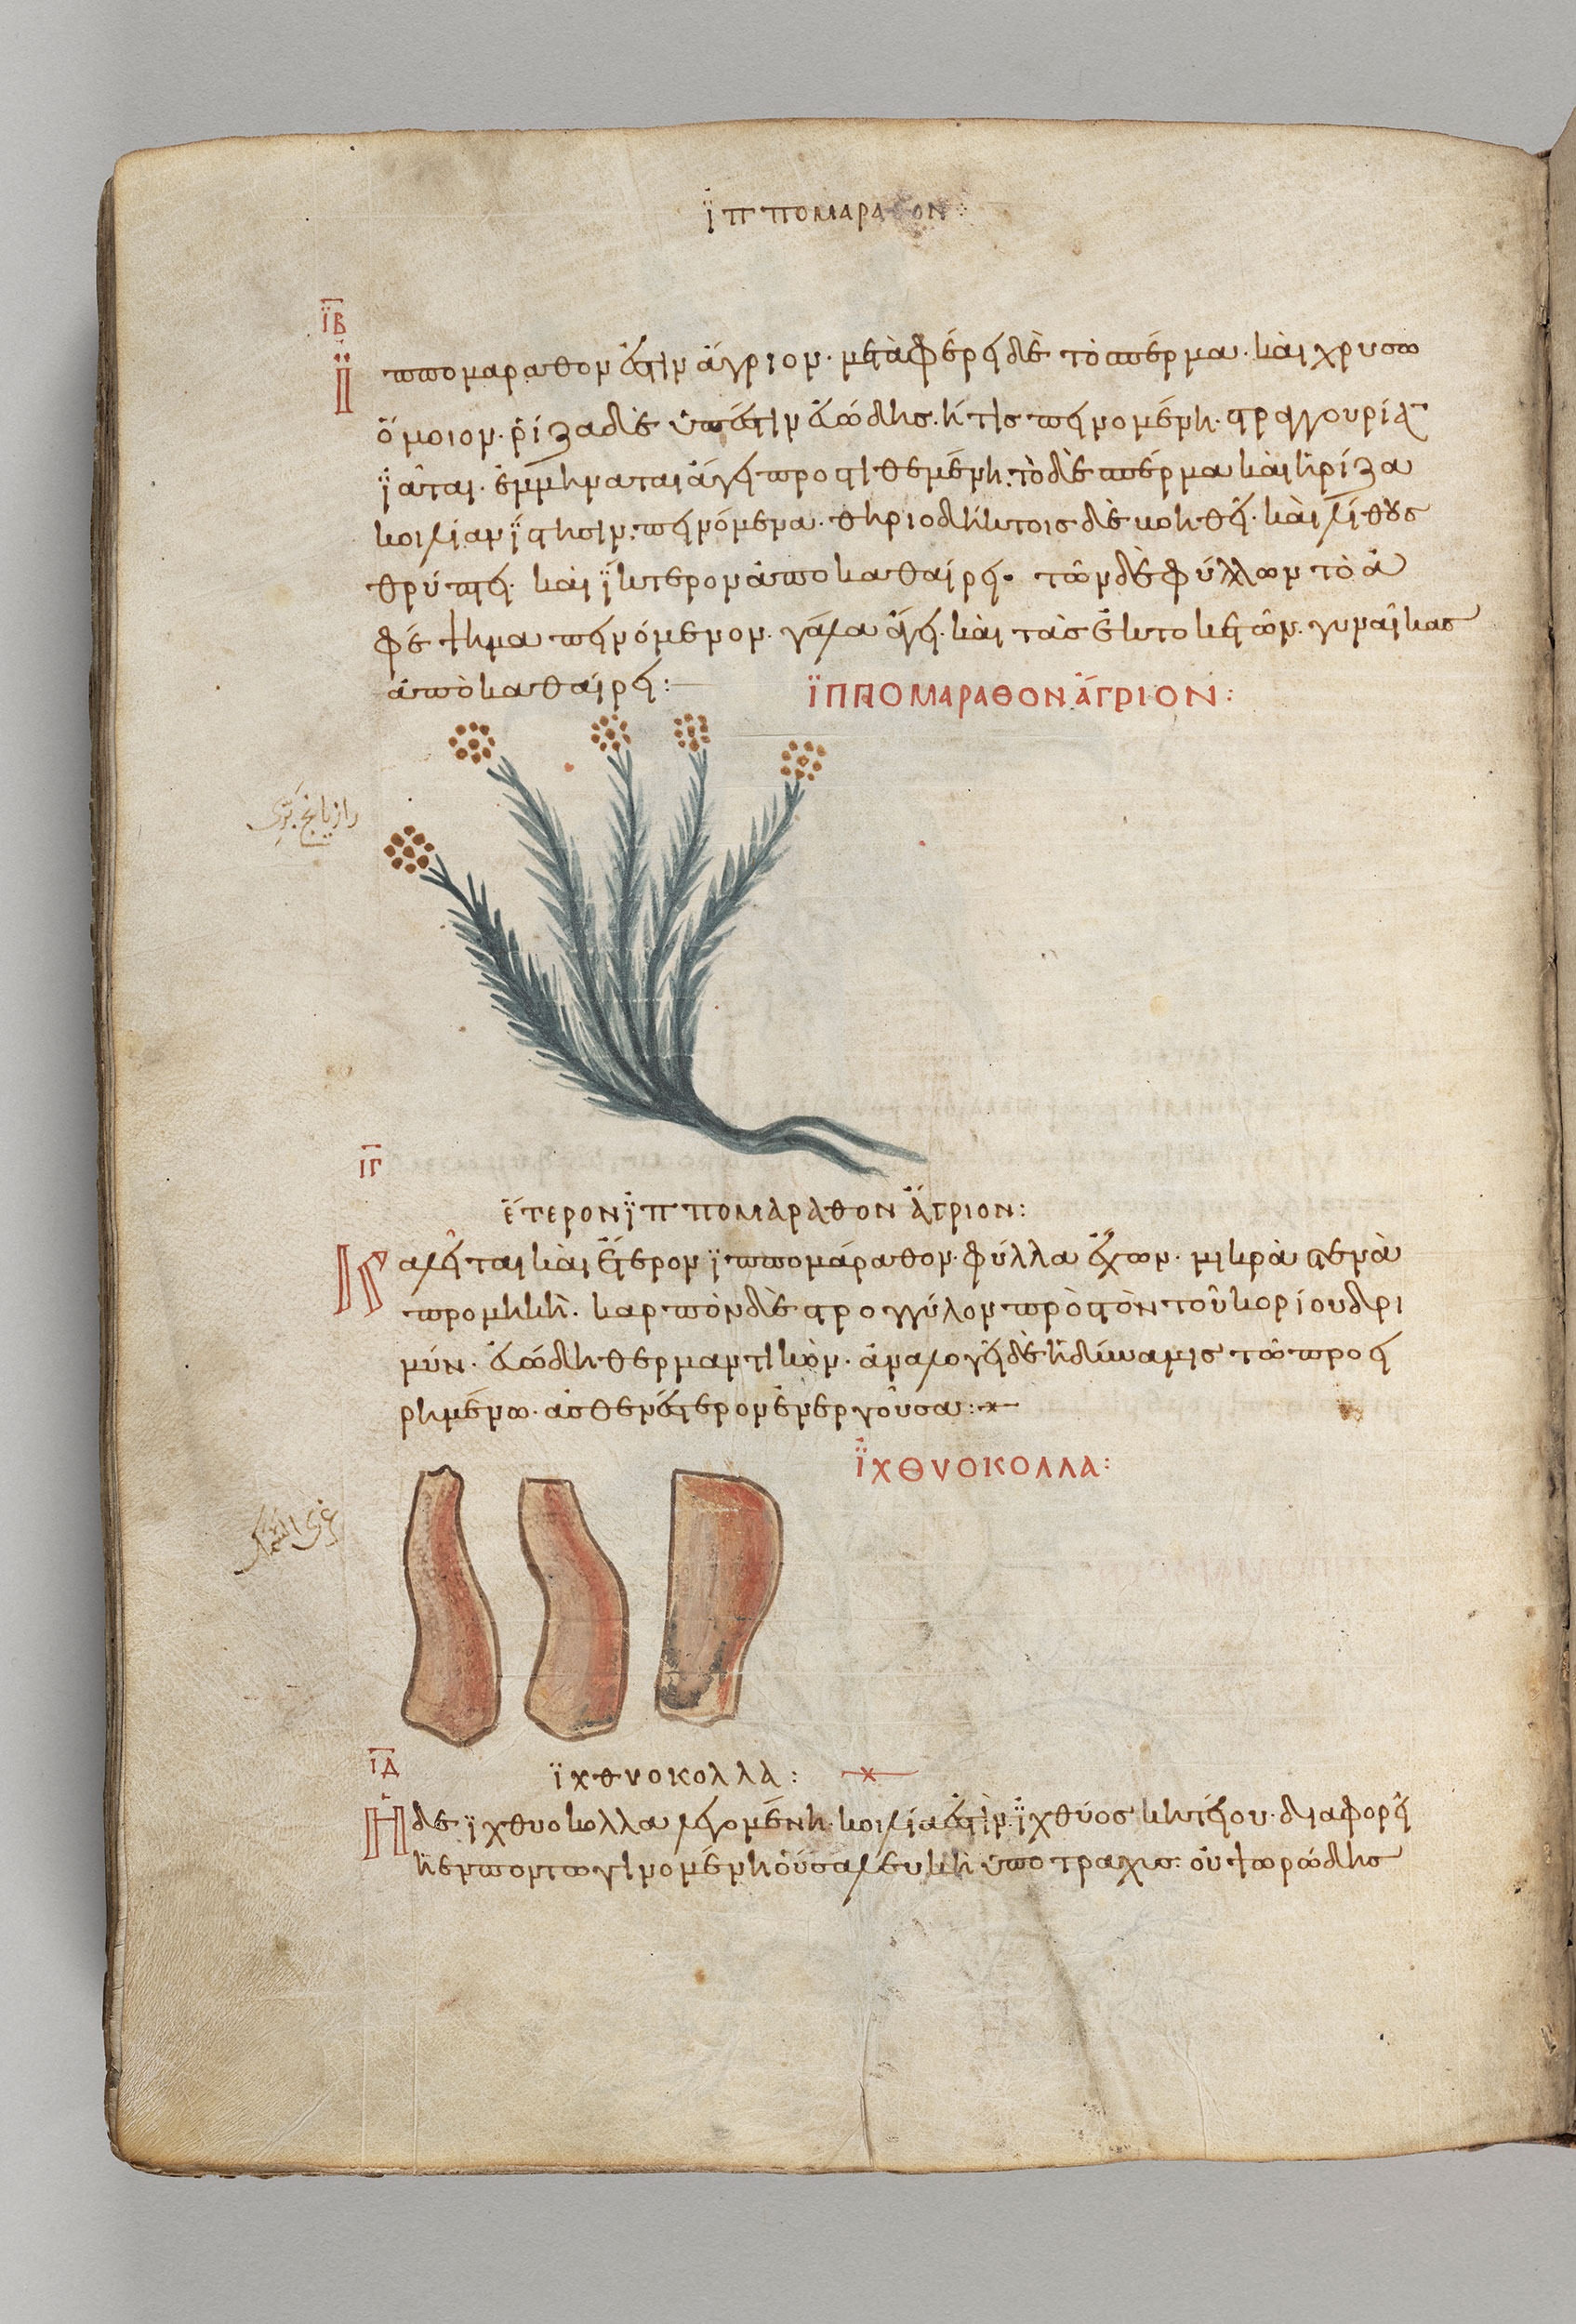 ἱππομαραθον:
ιβ
Ἱππομαραθον ἐστὶν ἄγριον· μεταφέρει δὲ τὸ σπέρμα· καὶ χρυσω
ὅμοιον· ῥίζα δὲ ὕπεστιν εὐώδης· ἥτις πεινομένη· στραγγουρίας
ἰᾶται· ἔμμηνα τὲ ἄγει προστιθεμένη· τὸ δὲ σπέρμα καὶ ἡ ρίζα
κοιλίαν ἵστησιν· πεινόμενα· θηριοδήκτοις δὲ βοηθεῖ· καὶ λίθους
θρύπτει· καὶ ἴκτερον ἀποκαθαίρει· τῶν δὲ φύλλων τὸ ἀ
φέψημα πεινόμενον· γάλα ἄγει· καὶ τὰς ἐκ τοκετῶν· γυναῖκας
ἀποκαθαίρει:
ἱππομαραθον ἄγριον:
رازيانج بري
ιγ
ἕτερον ἱππομαραθον ἄγριον:
Καλεῖται καὶ ἕτερον ἱππομάραθον· φύλλα ἔχων· μικρὰ στενὰ
προμήκη· καρπὸν δὲ στρογγύλον πρὸς τὸν τοῦ κορίου δρι
μύν· εὐώδη θερμαντικὸν· ἀναλογεῖ δὲ ἡ δύναμις τῶ προει
ρημένω· ἀσθενέστερον ἐνεργοῦσα:
ἰχθυοκολλα:
غرى السمك
ιδ
ἰχθυοκολλα:
Ἡ δὲ ἰχθυοκολλα λεγομένη· κοιλία ἐστὶν· ἰχθύος κητείου· διαφορεῖ
ἡ ἐν ποντω γινομένη οὖσα λευκὴ ὑπότραχις· οὐ ψωρώδης